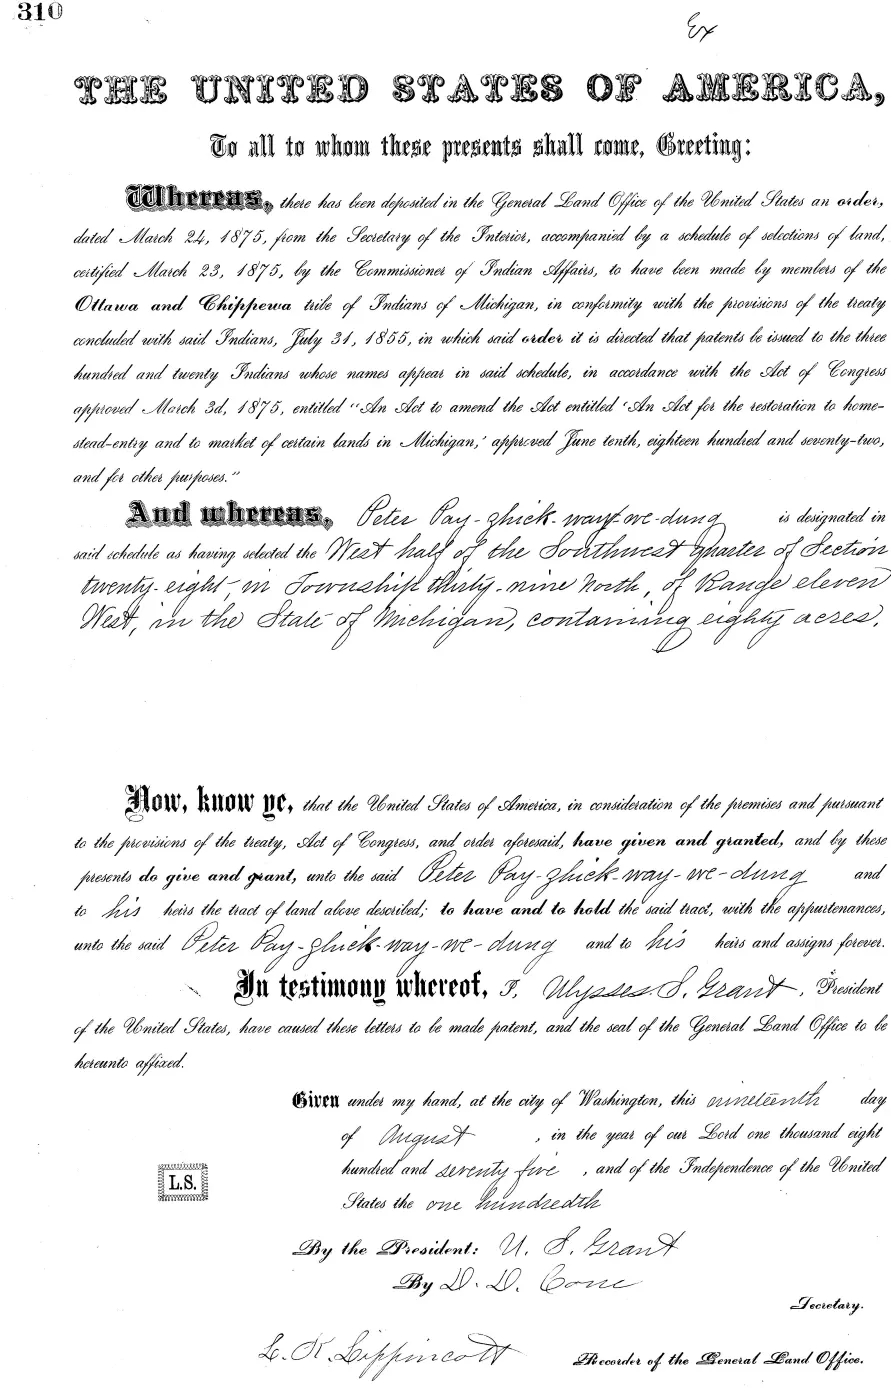 310
Ex
THE UNITED STATES OF AMERICA,
To all to whom these presents shall come, Greeting:
Whereas, there has been deposited in the General Land Office of the United States an order,
dated March 24, 1875, from the Secretary of the Interior, accompanied by a schedule of selections of land,
certified March 23, 1875, by the Commissioner of Indian Affairs, to have been made by members of the
Ottawa and Chippewa tribe of Indians of Michigan, in conformity with the provisions of the treaty
concluded with said Indians, July 31, 1855, in which said order it is directed that patents be issued to the three
hundred and twenty Indians whose names appear in said schedule, in accordance with the Act of Congress
approved March 3d, 1875, entitled "An Act to amend the Act entitled 'An Act for the restoration to home-
stead-entry and to market of certain lands in Michigan,' approved June tenth, eighteen hundred and seventy-two,
and for other purposes."
And whereas, Peter Pay-zhick-way-we-dung is designated in
said schedule as having selected the West half of the Southwest quarter of Section
twenty-eight, in Township thirty-nine North, of Range eleven
West, in the State of Michigan, containing eighty acres.
Now, know ye, that the United States of America, in consideration of the premises and pursuant
to the provisions of the treaty, Act of Congress, and order aforesaid, have given and granted, and by these
presents do give and grant, unto the said Peter Pay-zhick-way-we-dung and
to his heirs the tract of land above described; to have and to hold the said tract, with the appurtenances,
unto the said Peter Pay-zhick-way-we-dung and to his heirs and assigns forever.
In testimony whereof, I, Ulysses S. Grant, President
of the United States, have caused these letters to be made patent, and the seal of the General Land Office to be
hereunto affixed.
Given under my hand, at the city of Washington, this nineteenth day
of August, in the year of our Lord one thousand eight
hundred and seventy five, and of the Independence of the United
States the one hundredth
L.S.
By the President: U. S. Grant
By D. D. Cone
Secretary.
L. K. Lippincott Recorder of the General Land Office.